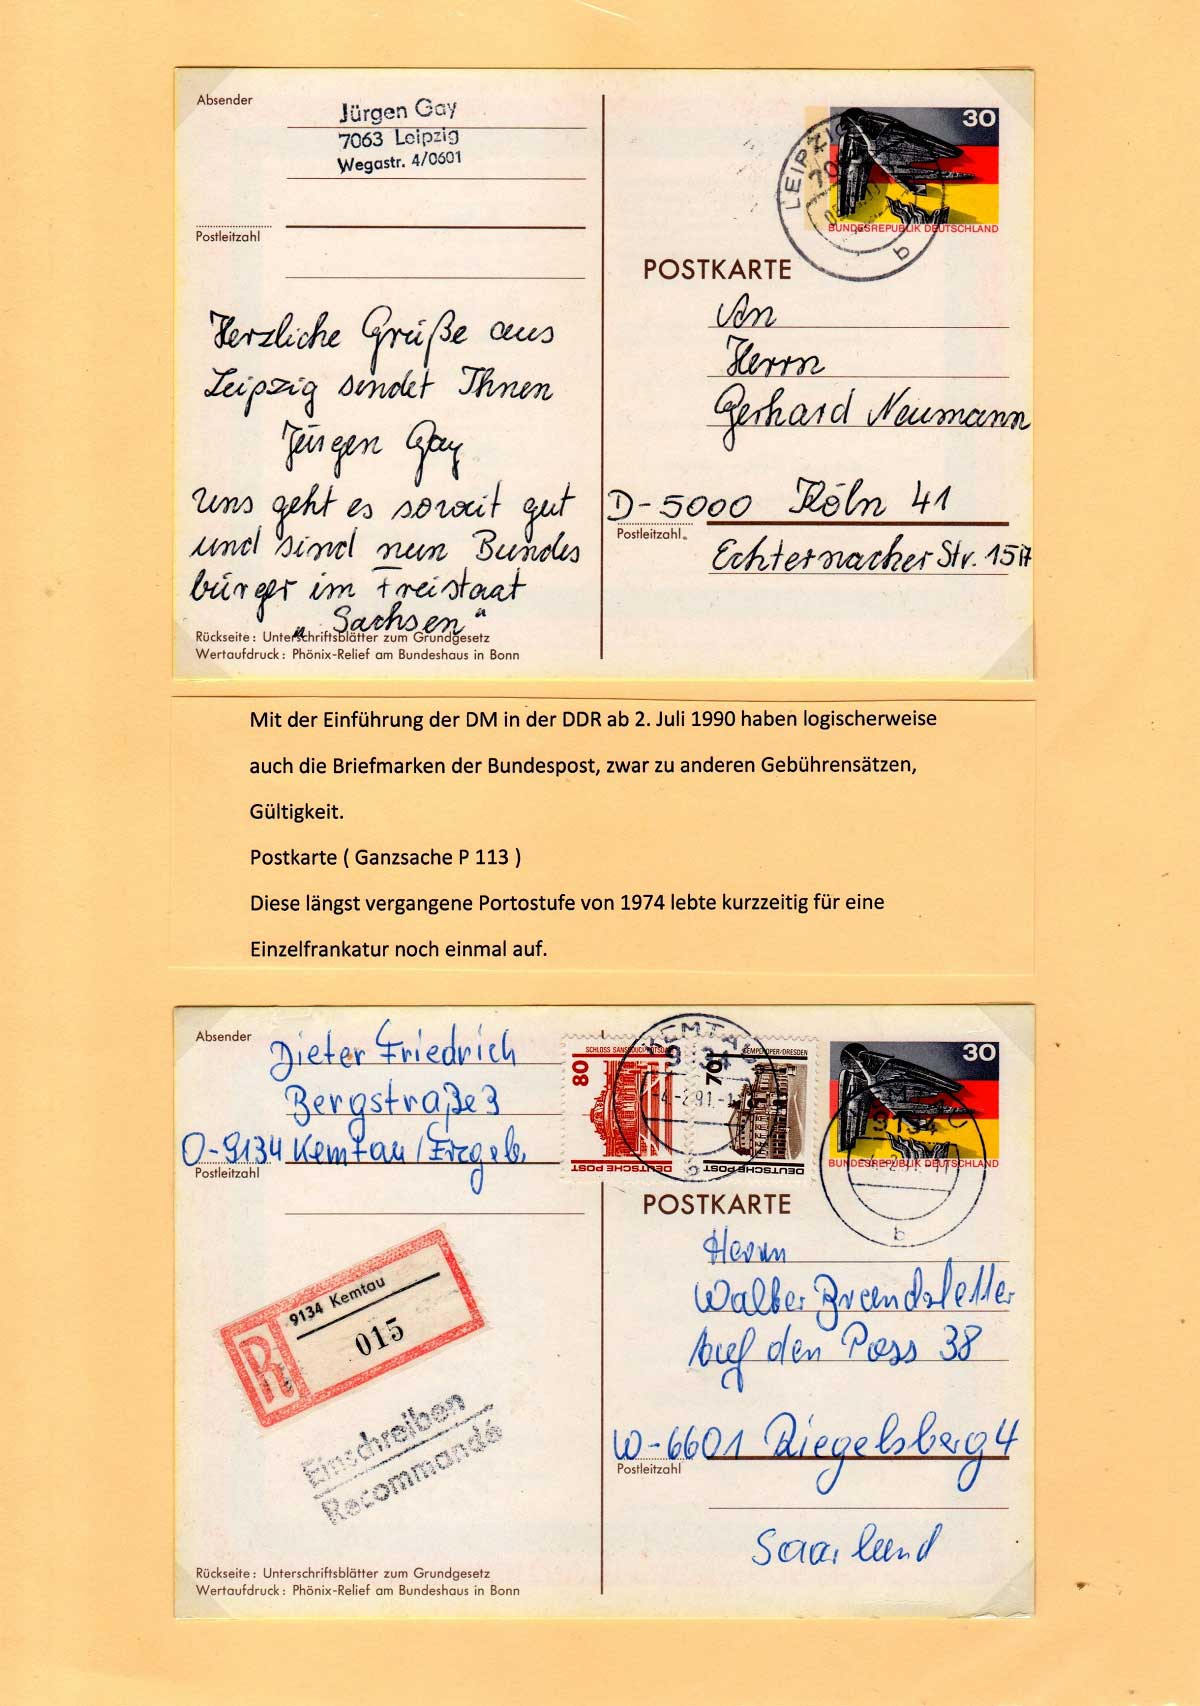 Absender
Jürgen Gay
7063 Leipzig
Wegastr. 4/0601
Postleitzahl
30
LEIPZIG
BUNDESREPUBLIK DEUTSCHLAND
b
POSTKARTE
Herzliche Grüße aus
Leipzig sendet Ihnen
Jürgen Gay
uns geht es soweit gut
und sind nun Bundes
bürger im Freistaat
"Sachsen"
An
Herrn
Gerhard Neumann
D-5000 Köln 41
Postleitzahl
Echternacher Str.
Rückseite: Unterschriftsblätter zum Grundgesetz
Wertaufdruck: Phönix-Relief am Bundeshaus in Bonn
Mit der Einführung der DM in der DDR ab 2. Juli 1990 haben logischerweise
auch die Briefmarken der Bundespost, zwar zu anderen Gebührensätzen,
Gültigkeit.
Postkarte ( Ganzsache P 113 )
Diese längst vergangene Portostufe von 1974 lebte kurzzeitig für eine
Einzelfrankatur noch einmal auf.
Absender
Dieter Friedrich
Bergstraße 3
O-9134 Kemtau/Erzgeb.
Postleitzahl
SCHLOSS SANSSOUCI/POTSDAM
80
DEUTSCHE POST
SEMPEROPER/DRESDEN
70
DEUTSCHE POST
KEMTAU
9134
-4.-2.91.-
30
BUNDESREPUBLIK DEUTSCHLAND
9134
b
POSTKARTE
Herrn
Walter Brandstetter
Auf den Pass 38
W-6601 Riegelsberg 4
Postleitzahl
Saarland
R
9134 Kemtau
015
Einschreiben
Recommandé
Rückseite: Unterschriftsblätter zum Grundgesetz
Wertaufdruck: Phönix-Relief am Bundeshaus in Bonn